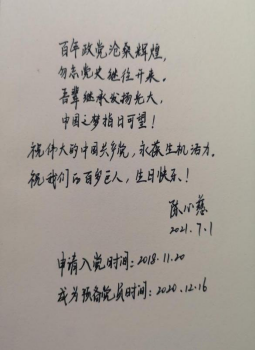 百年政党沧桑辉煌,
勿忘党史继往开来。
吾辈继承发扬光大,
中国之梦指日可望!
祝伟大的中国共产党,永葆生机活力。
祝我们的百岁巨人,生日快乐!
陈心慈
2021.7.1
申请入党时间:2018.11.20
成为预备党员时间:2020.12.16